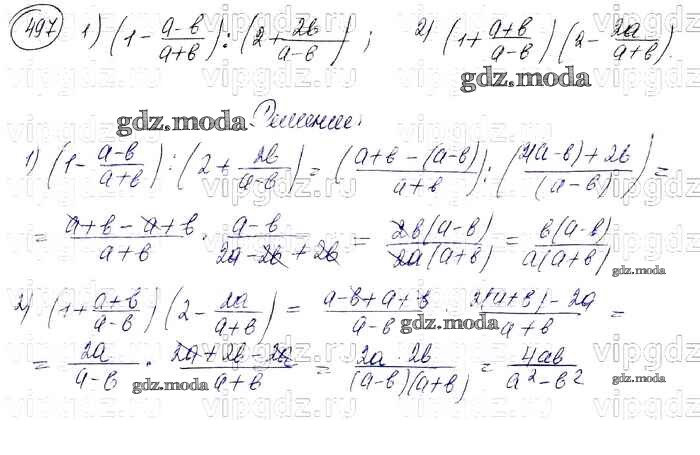 497 1) (1 - (a-b)/(a+b)) : (2 + 2b/(a-b)) ; 2) (1 + (a+b)/(a-b)) (2 - 2a/(a+b)).
gdz.moda
gdz.moda Решение.
1) (1 - (a-b)/(a+b)) : (2 + 2b/(a-b)) = ((a+b-(a-b))/(a+b)) : ((2(a-b)+2b)/(a-b)) =
= (a+b-a+b)/(a+b) · (a-b)/(2a-2b+2b) = 2b(a-b)/2a(a+b) = b(a-b)/a(a+b)
gdz.moda
2) (1 + (a+b)/(a-b)) (2 - 2a/(a+b)) = (a-b+a+b)/(a-b) · (2(a+b)-2a)/(a+b) =
gdz.moda
= 2a/(a-b) · (2a+2b-2a)/(a+b) = (2a·2b)/((a-b)(a+b)) = 4ab/(a²-b²)
gdz.moda gdz.moda